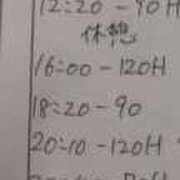 12:20 - 90H
休憩
16:00 - 120H
18:20 - 90
20:10 - 120H